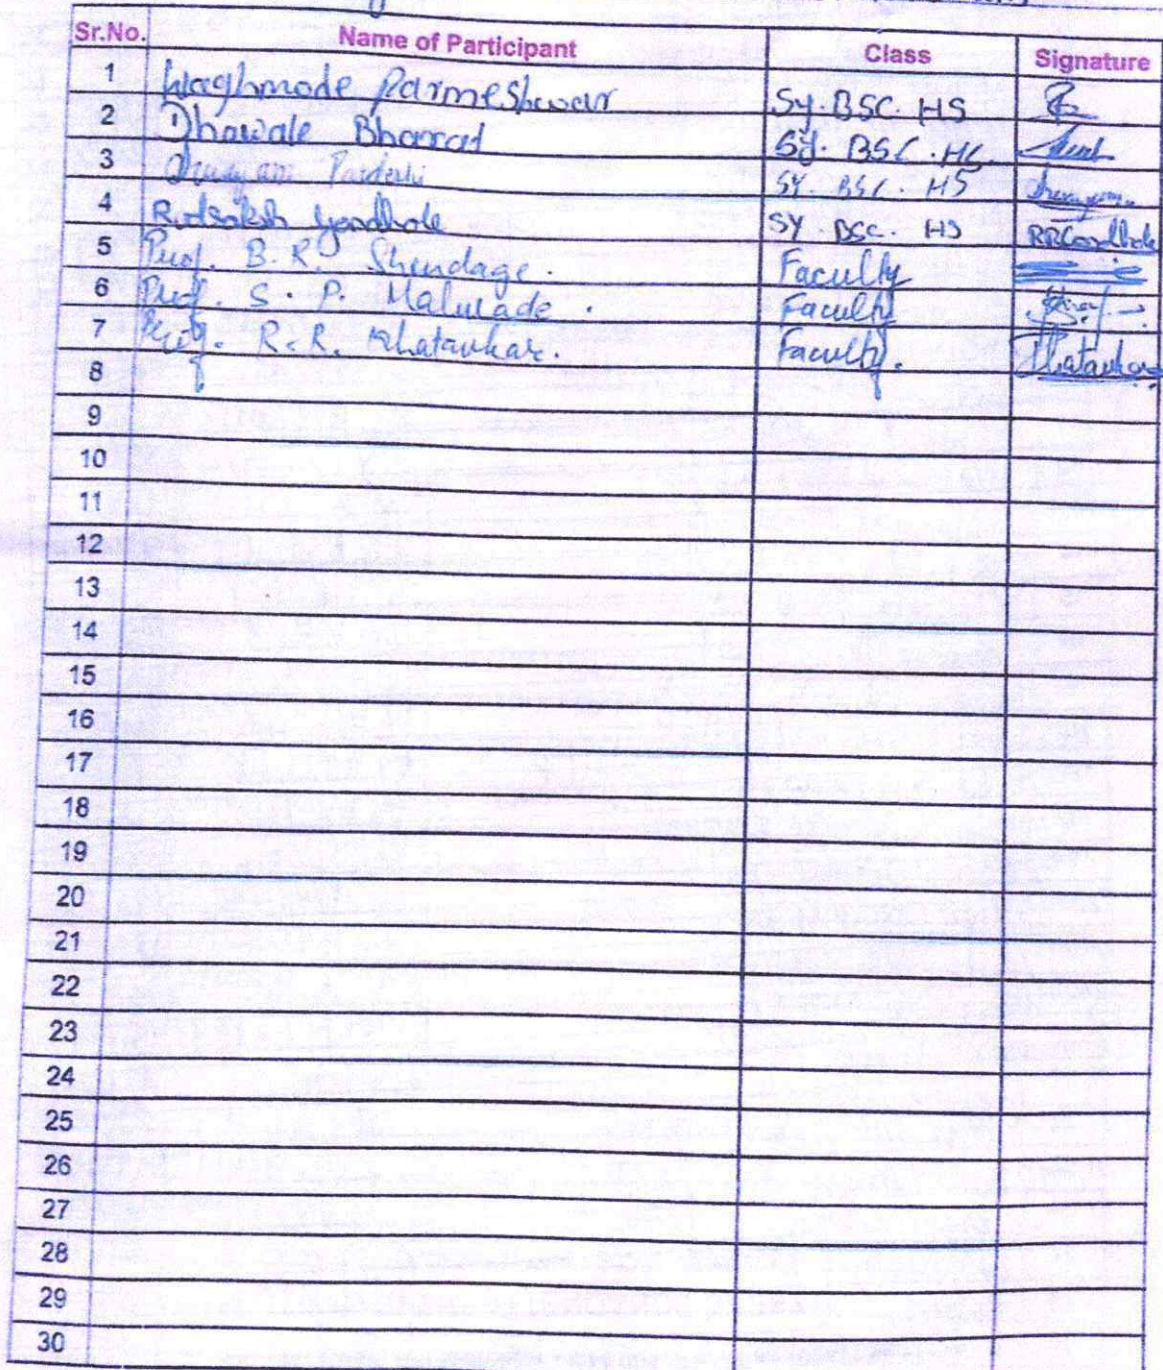 Sr.No. Name of Participant Class Signature
1 Waghmode Parmeshwar Sy. BSC. HS
2 Dhawale Bharat Sy. BSC. HS
3 Pardeshi SY. BSC. HS
4 Sy BSc. HS
5 Prof. B. R. Shendage. Faculty
6 Prof. S. P. Faculty
7 Prof. R. R. Khatavkar. Faculty. Khatavkar
8
9
10
11
12
13
14
15
16
17
18
19
20
21
22
23
24
25
26
27
28
29
30